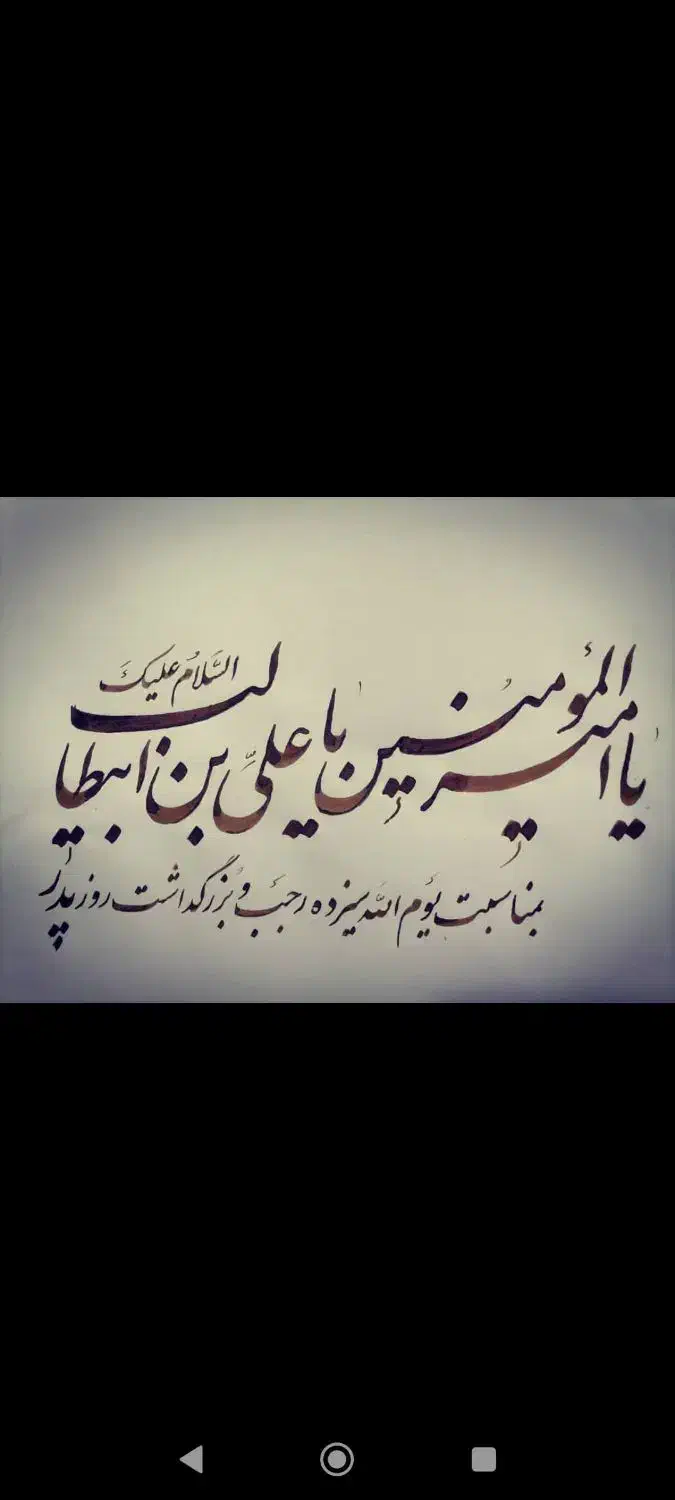 یا امیرالمؤمنین یا علیِّ بن ابیطالب
السَّلامُ علیکَ
بمناسبت یَوم الله سیزده رجبَ وَ بُزرگداشت روز پدر